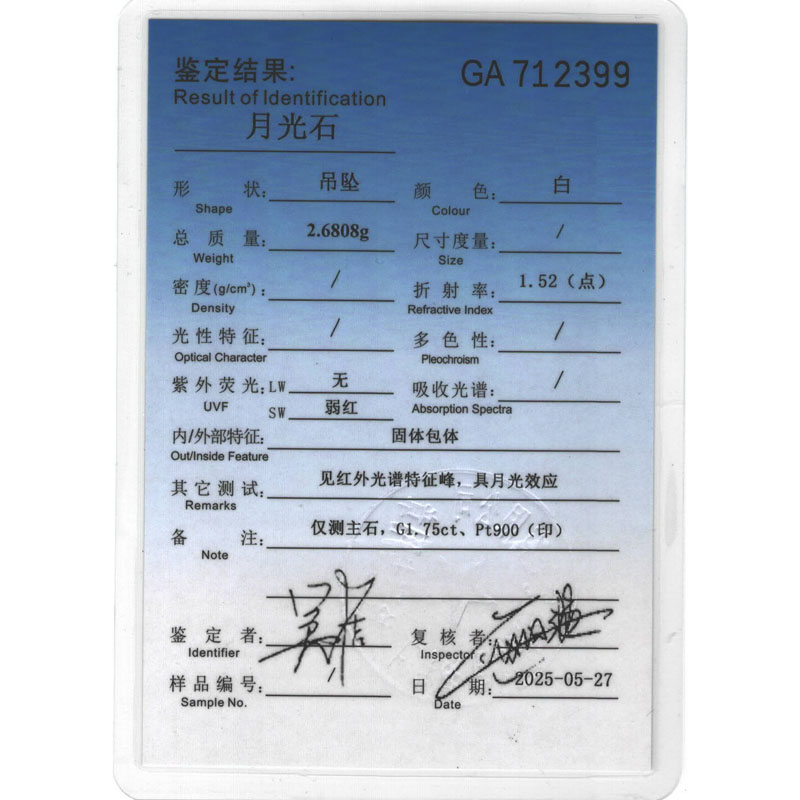 鉴定结果:
GA 712399
Result of Identification
月光石
形 状: 吊坠 颜 色: 白
Shape Colour
总 质 量: 2.6808g 尺寸度量: /
Weight Size
密度(g/cm³): / 折 射 率: 1.52（点）
Density Refractive Index
光性特征: / 多 色 性: /
Optical Character Pleochroism
紫外荧光: LW 无 吸收光谱: /
UVF SW 弱红 Absorption Spectra
内/外部特征: 固体包体
Out/Inside Feature
其它测试: 见红外光谱特征峰，具月光效应
Remarks
备 注: 仅测主石，G1.75ct、Pt900（印）
Note
鉴 定 者: 复 核 者:
Identifier Inspector
样品编号: 日 期: 2025-05-27
Sample No. Date